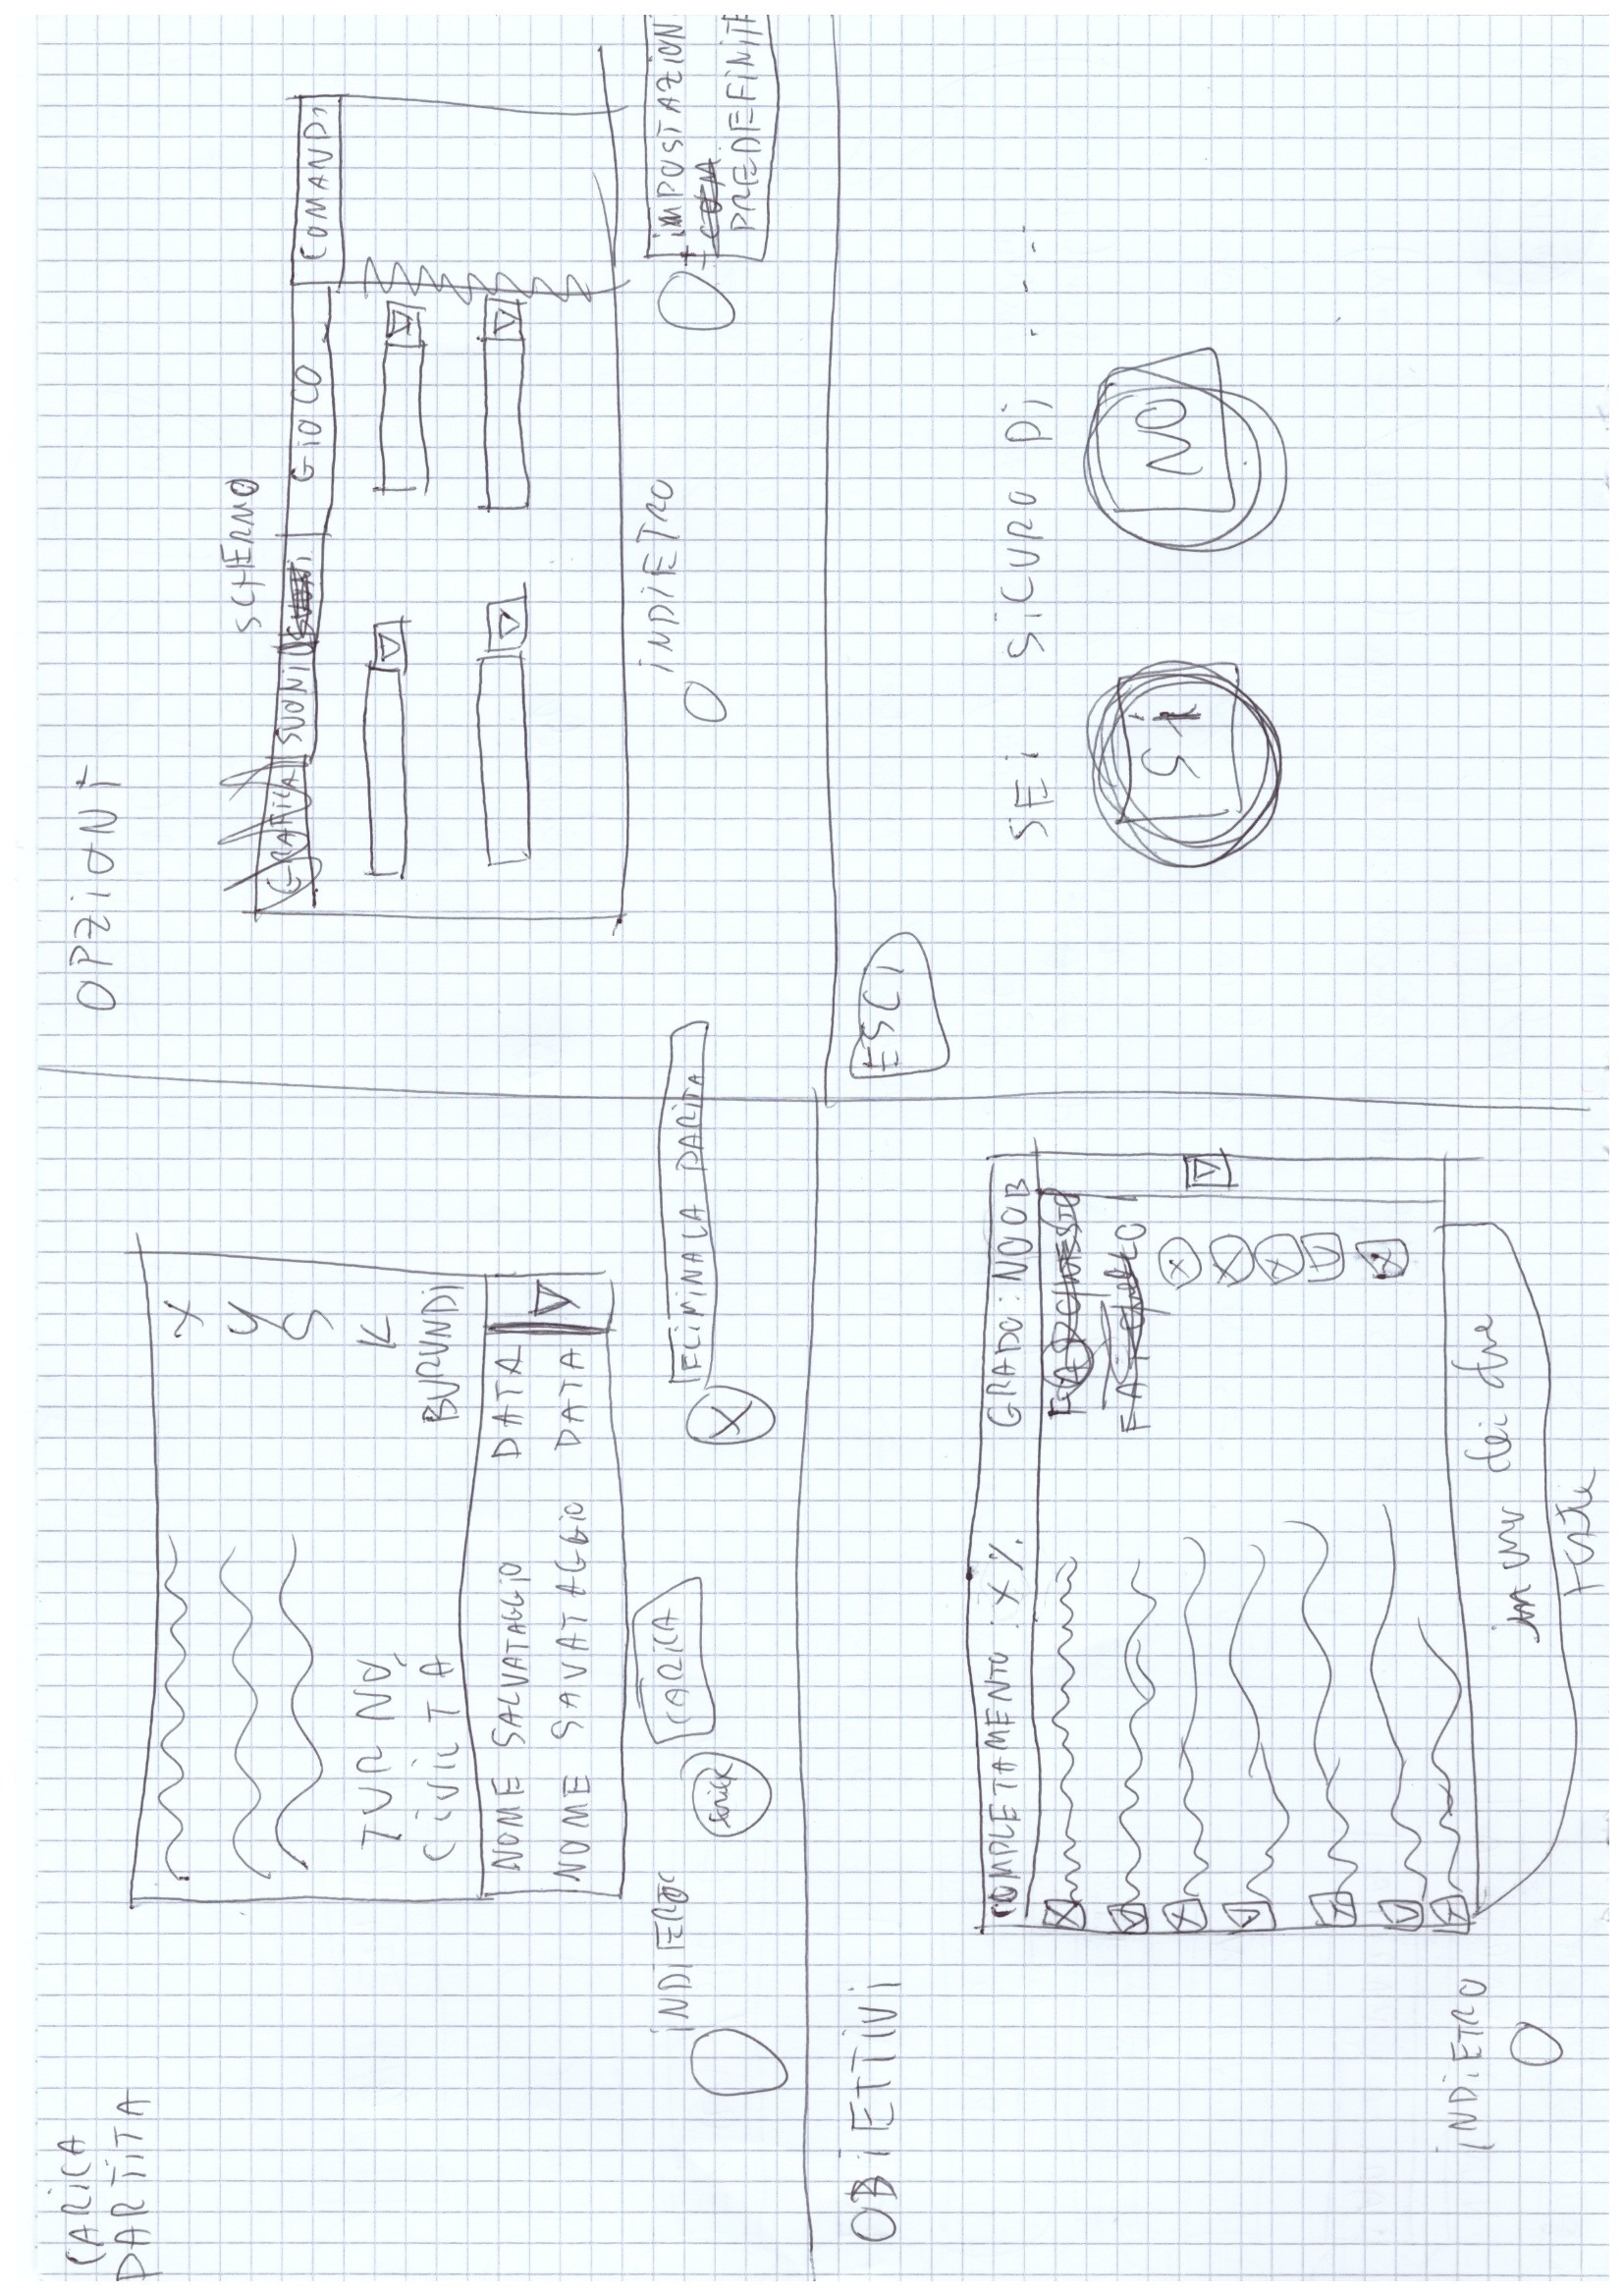 CARICA
PARTITA
X
Y
S
TURNO K
CIVILTÀ BURUNDI
NOME SALVATAGGIO DATA
NOME SAVATAGGIO DATA
INDIETRO
CARICA
X
ELIMINA LA PARITA
OPZIONI
SCHERMO
GRAFICA SUONI SUONI GIOCO COMANDI
INDIETRO
IMPOSTAZIONI
COM
PREDEFINITE
OBIETTIVI
COMPLETAMENTO : X % GRADO : NOOB
FAI QUESTO
FAI quello
INDIETRO
in uno dei due
posti
ESCI
SEI SICURO DI .----
SI
NO